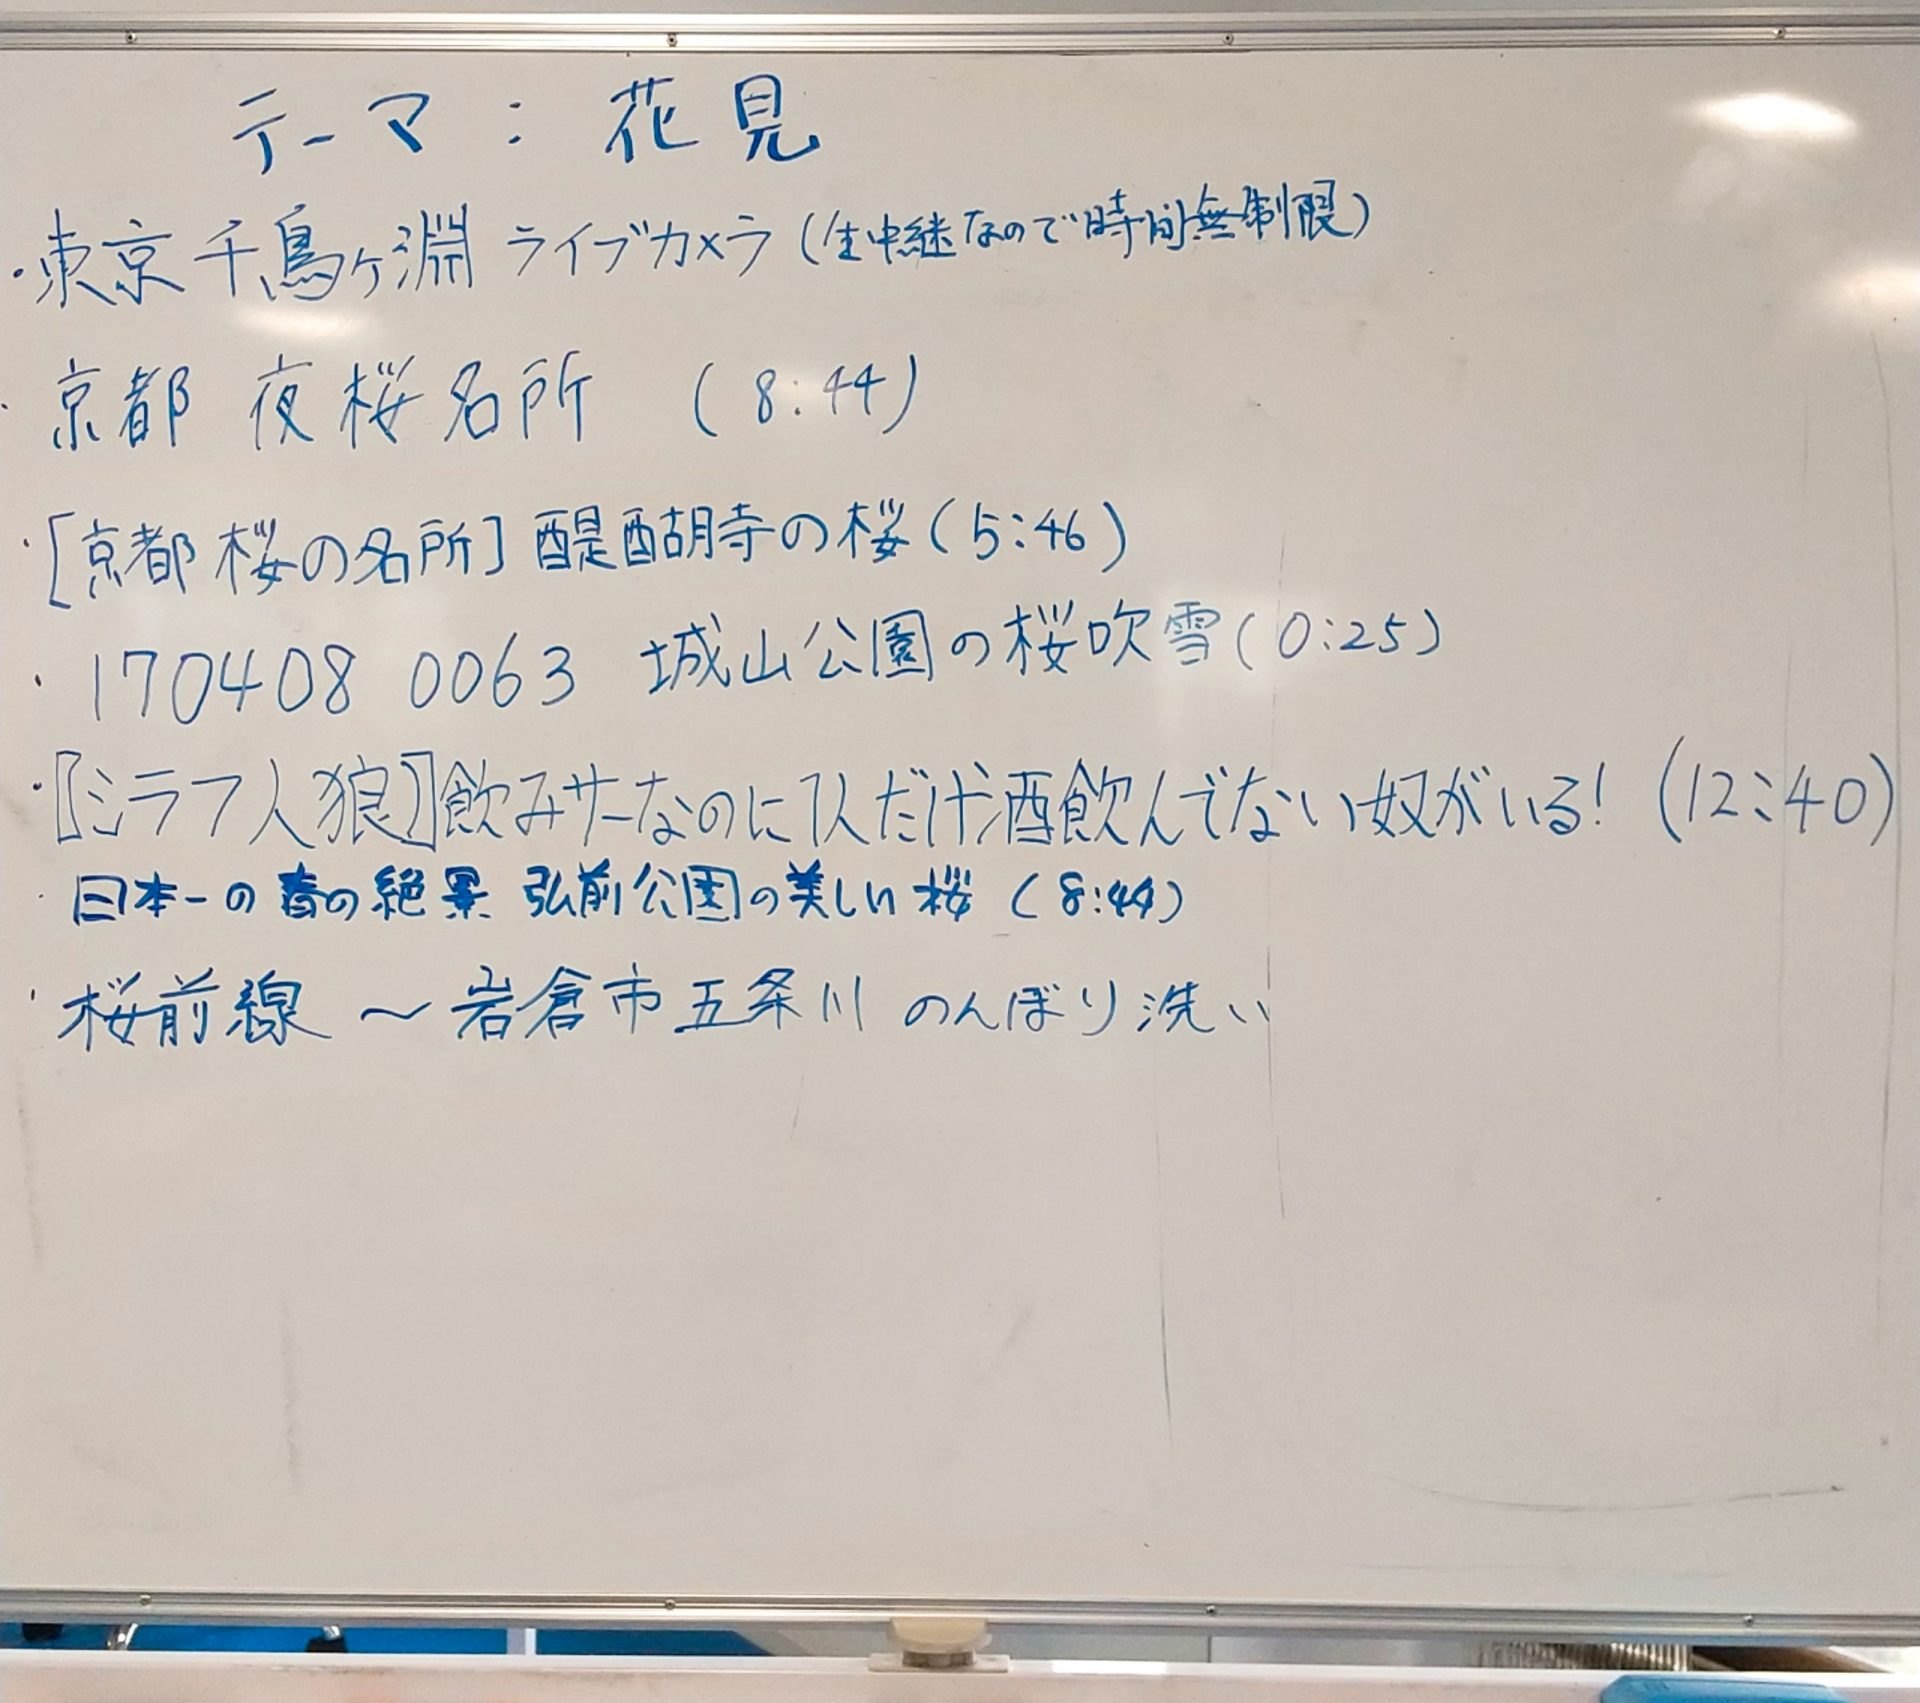 テーマ：花見
・東京千鳥ヶ淵 ライブカメラ（生中継なので時間無制限）
・京都 夜桜名所 （8:44）
・[京都桜の名所] 醍醐寺の桜（5:46）
・170408 0063 城山公園の桜吹雪（0:25）
・〖シラフ人狼〗飲みサーなのに1人だけ酒飲んでない奴がいる！（12:40）
・日本一の春の絶景 弘前公園の美しい桜（8:44）
・桜前線 〜岩倉市五条川 のんぼり洗い